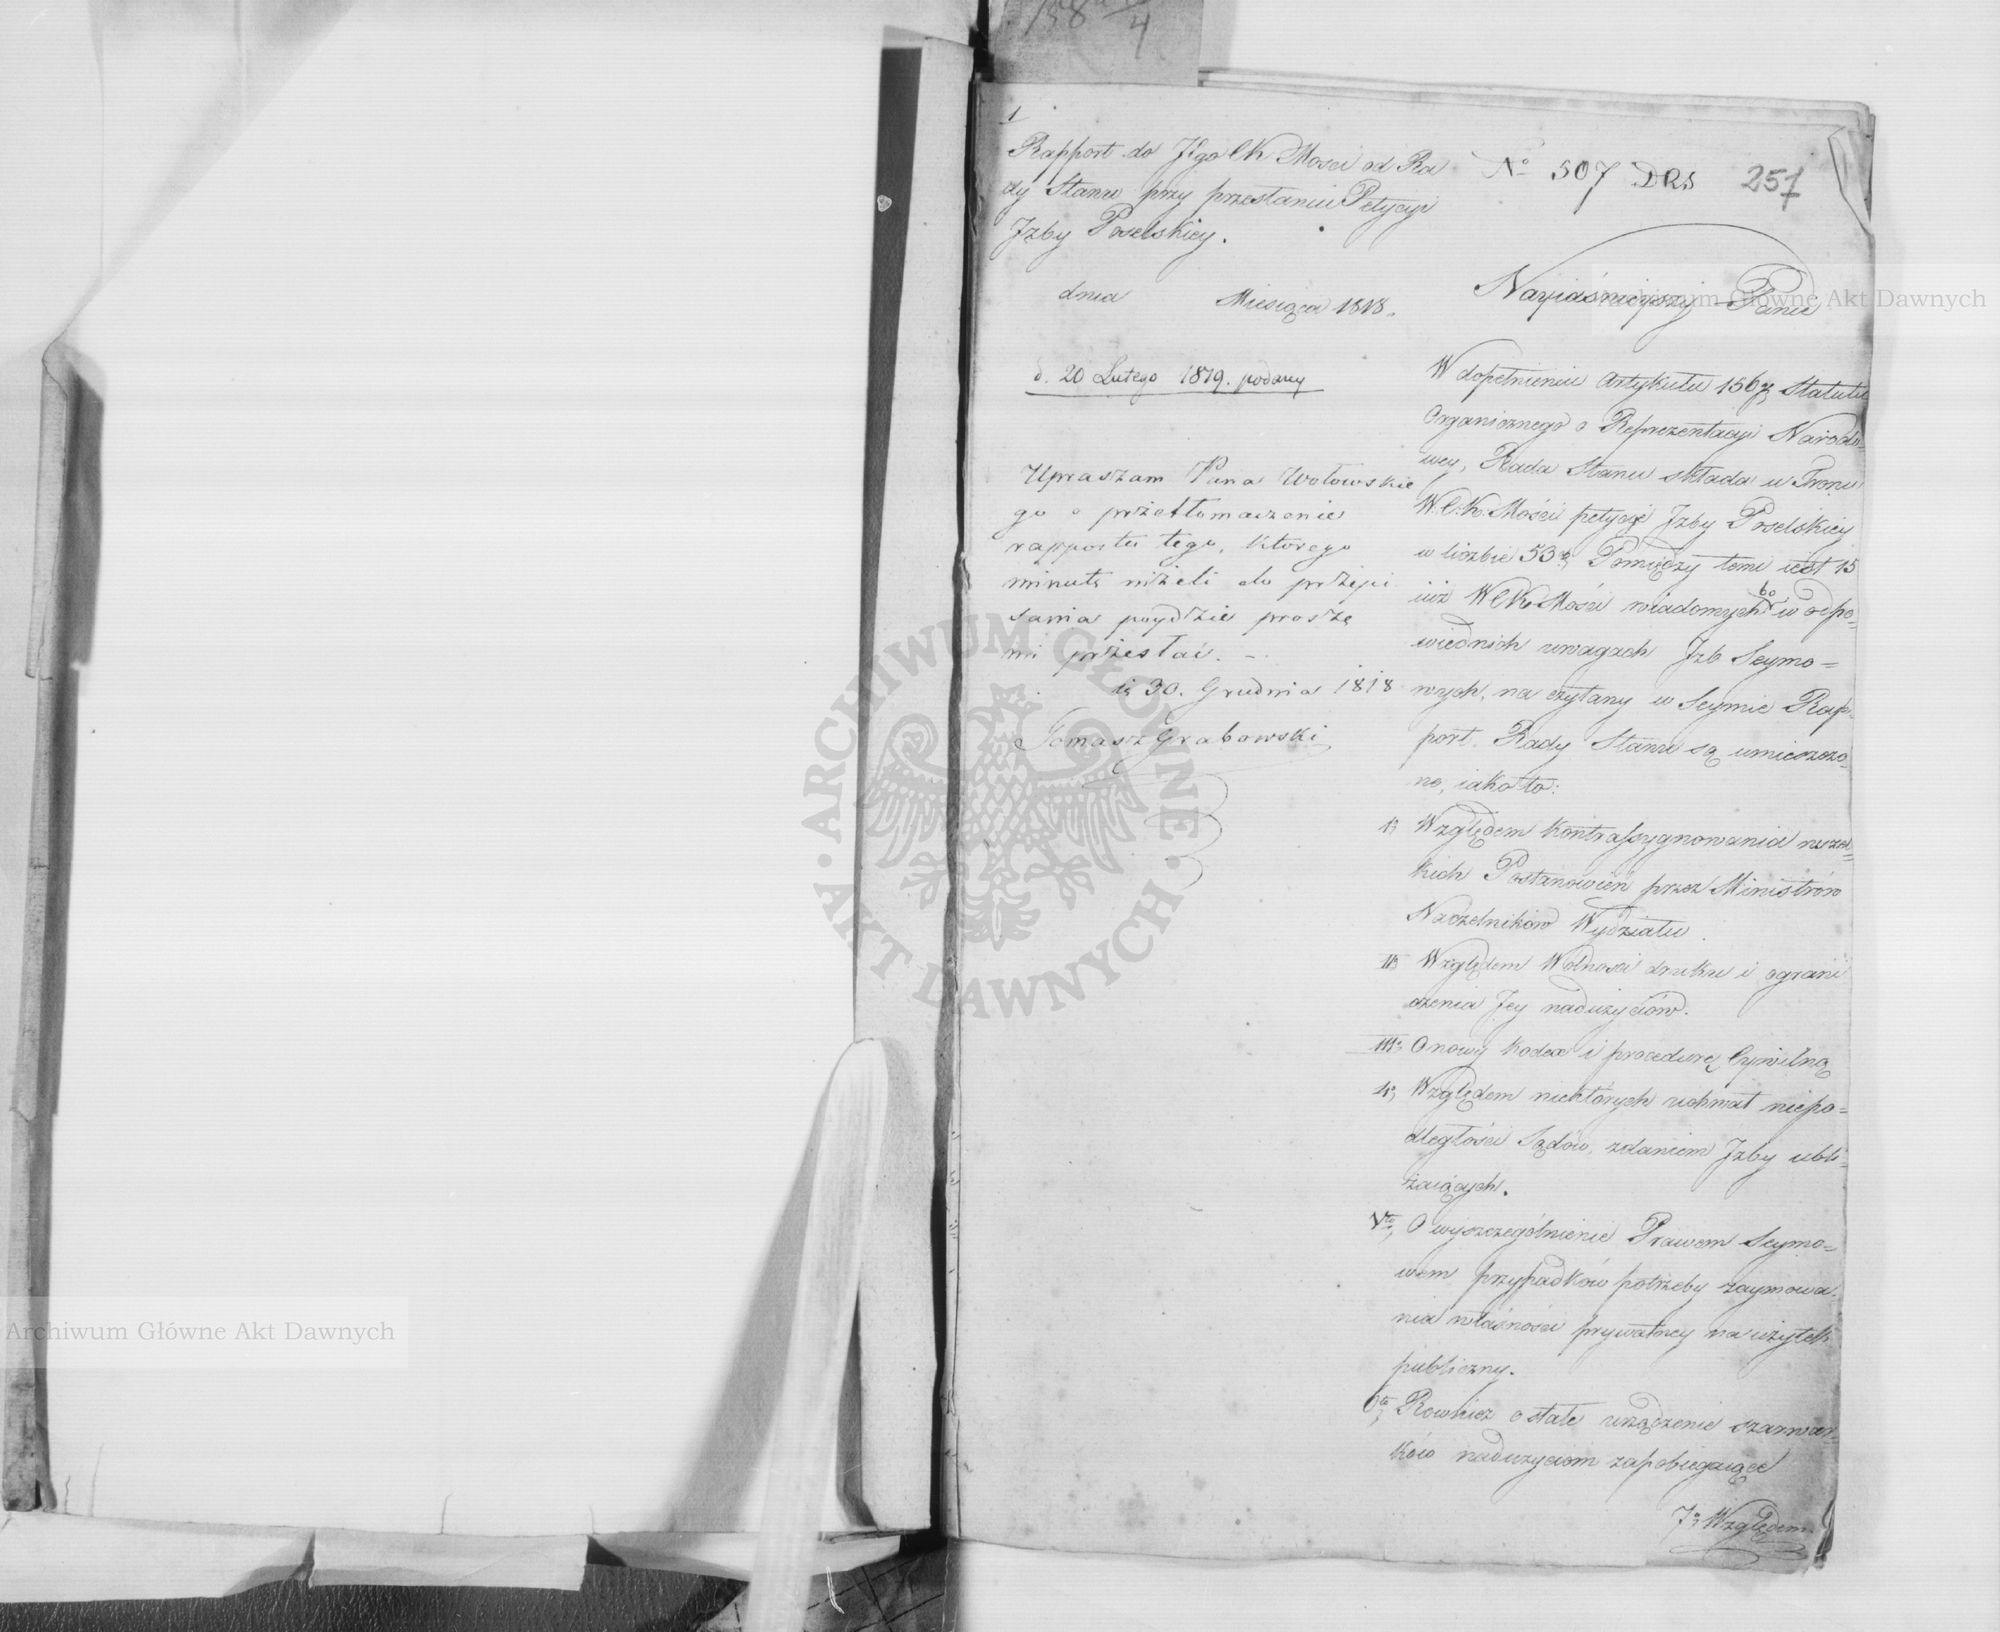 158
4
1
Rapport do Jego CK Mosci od Ra
dy Stanu przy przesłaniu Petycyi
Jzby Poselskiey.
dnia Miesiąca 1818.
d. 20 Lutego 1819. podany
Upraszam Pana Wołowskie
go o przetłomaczenie
rapportu tego, ktorego
minutę niżeli do przepi
sania poydzie proszę
mi przesłać. –
30. Grudnia 1818
Tomasz Grabowski
No 507 DRS 251
Nayiaśnieyszy Panie
W dopełnieniu Artykułu 156go Statutu
Organicznego o Reprezentacyi Narodo=
wey, Rada Stanu składa u Tronu
W.C.K. Mości petycye Jzby Poselskiey
w liczbie 53. Pomiędzy temi iest 15
iuż WCK Mości wiadomych bo w odpo=
wiednich uwagach Jzb Seymo=
wych, na czytany w Seymie Rap=
port Rady Stanu są umieszczo=
ne, iako to:
1) Względem kontrassygnowania wszel=
kich Postanowień przez Ministrów
Naczelników Wydziału
II) Względem Wolności druku i ograni
czenia Jey nadużyciów.
III) O nowy kodex i procedurę Cywilną
4) Względem niektórych uchwał niepo=
dległości Sądów, zdaniem Jzby ubli=
żaiących.
Vto, O wyszczególnienie Prawem Seymo=
wem przypadków potrzeby zaymowa=
nia własności prywatney na użytek
publiczny.
6to, Rownież o stałe urządzenie szarwar=
ków nadużyciom zapobiegaiące
7o, Względem
Archiwum Główne Akt Dawnych
Archiwum Główne Akt Dawnych
ARCHIWUM GŁÓWNE · AKT DAWNYCH ·